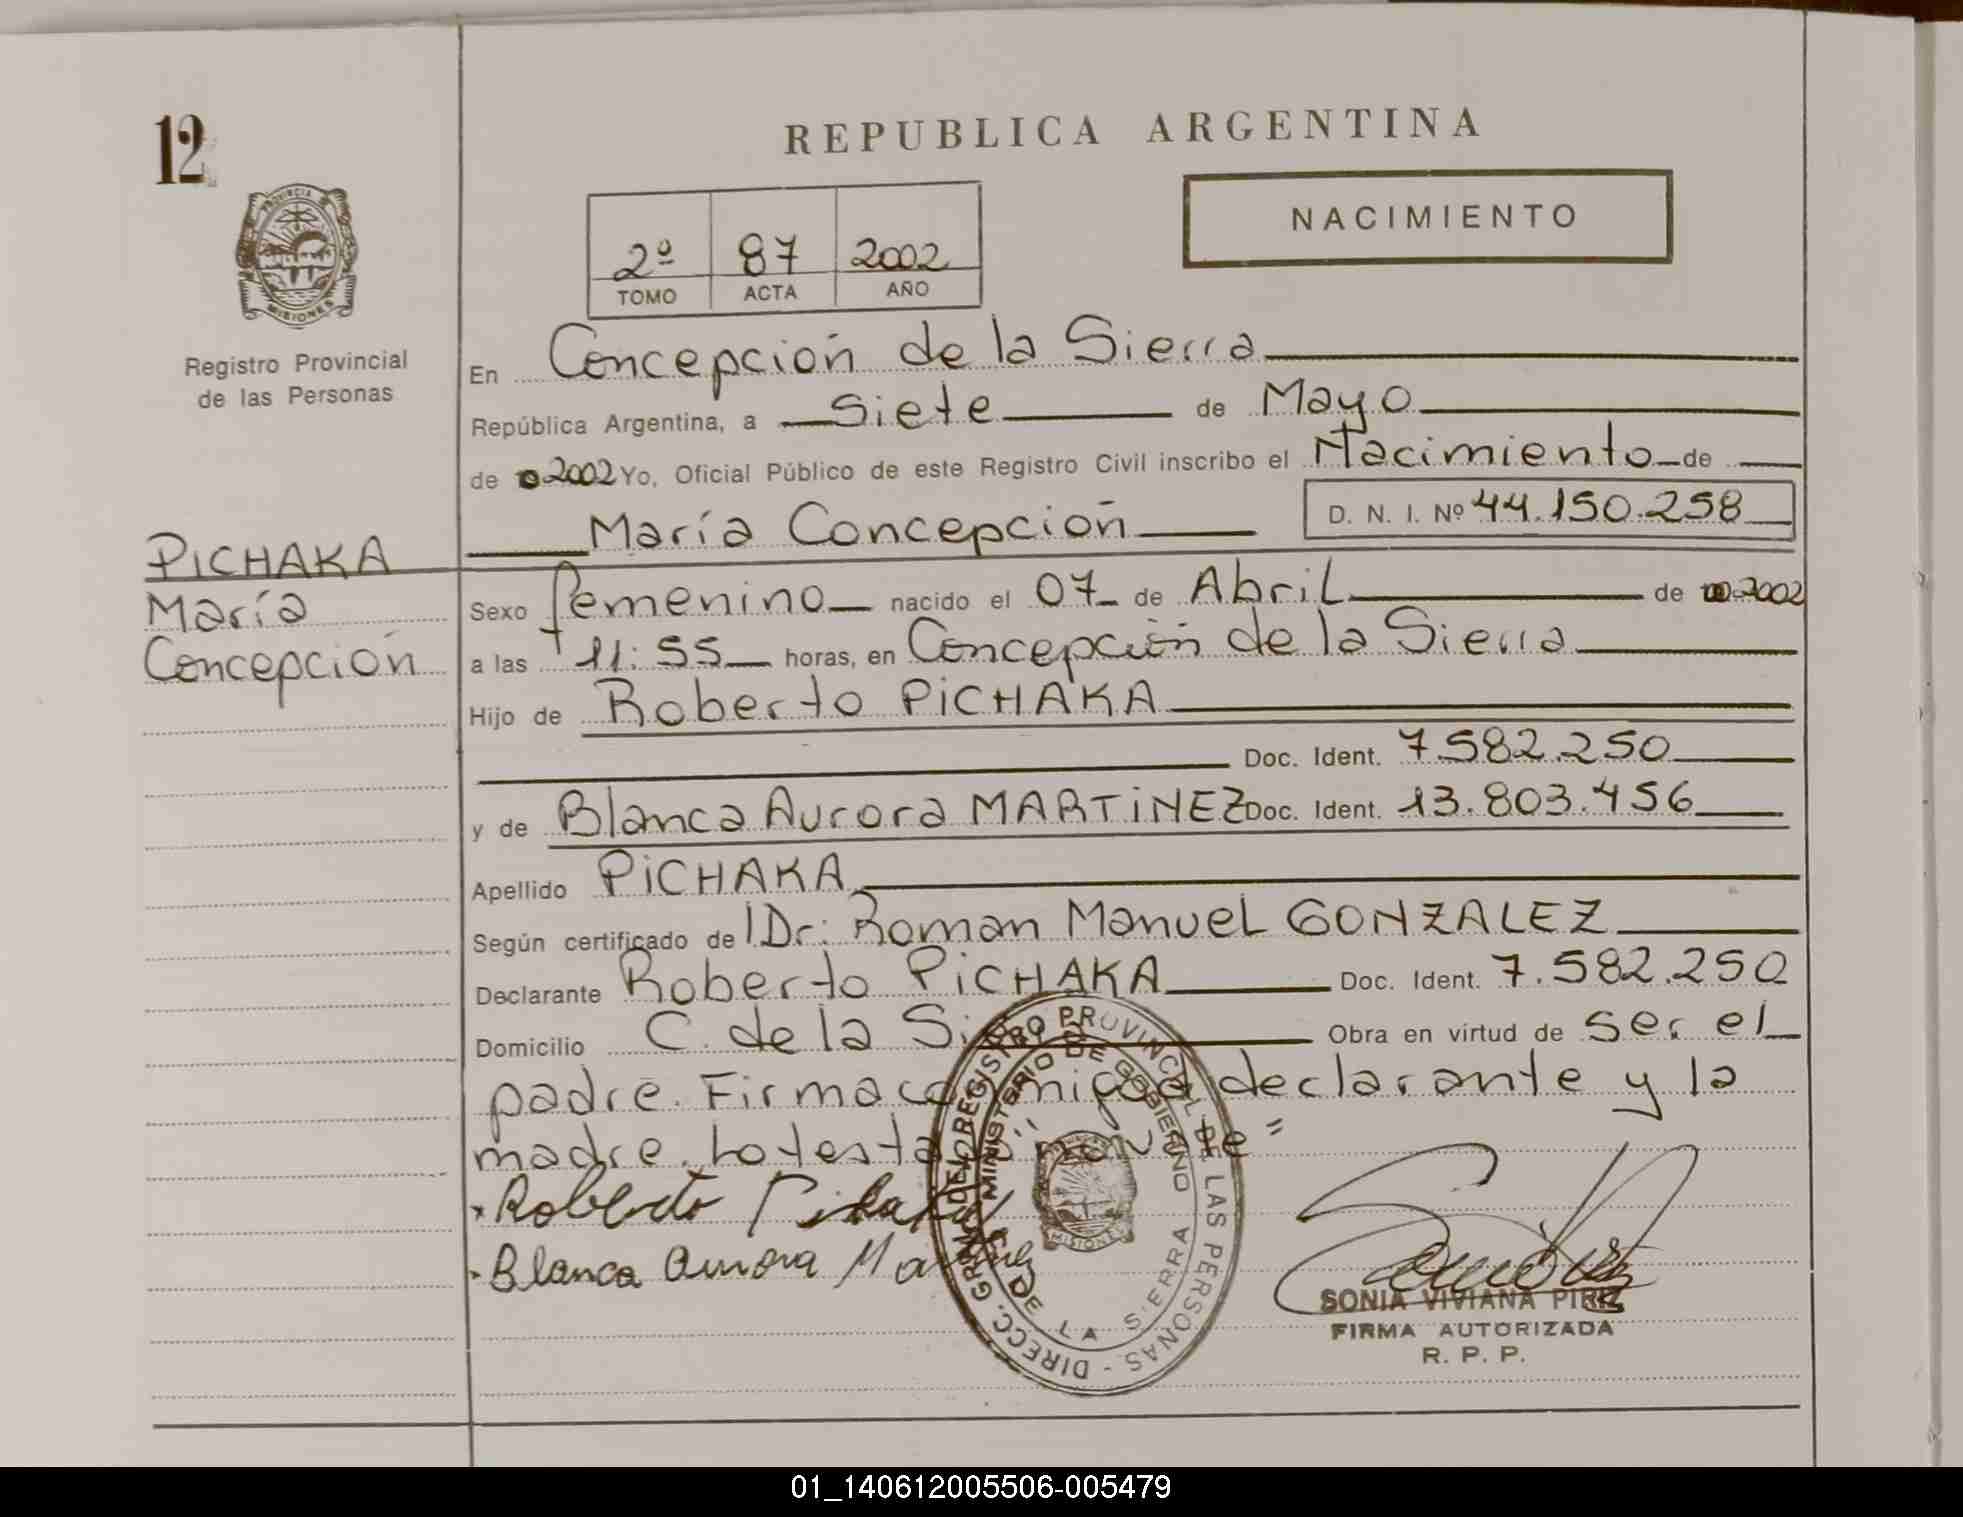 12
REPUBLICA ARGENTINA
NACIMIENTO
2º 87 2002
TOMO ACTA AÑO
PROVINCIA DE
MISIONES
Registro Provincial
de las Personas
En Concepción de la Sierra
República Argentina, a Siete de Mayo
de 2002 Yo, Oficial Público de este Registro Civil inscribo el Nacimiento de
María Concepción D. N. I. Nº 44.150.258
PICHAKA
María
Concepción
Sexo femenino nacido el 07 de Abril de 2002
a las 11:55 horas, en Concepción de la Sierra
Hijo de Roberto PICHAKA
Doc. Ident. 7.582.250
y de Blanca Aurora MARTINEZ Doc. Ident. 13.803.456
Apellido PICHAKA
Según certificado del Dr: Roman Manuel GONZALEZ
Declarante Roberto PICHAKA Doc. Ident. 7.582.250
Domicilio C. de la Obra en virtud de ser el
padre. Firma declarante y la
madre.
Roberto Pichaka
Blanca Aurora
DIRECC. GRAL. DEL REGISTRO PROVINCIAL DE LAS PERSONAS
MINISTERIO DE GOBIERNO
DE LA SIERRA
MISIONES
SONIA VIVIANA PIRIZ
FIRMA AUTORIZADA
R. P. P.
01_140612005506-005479